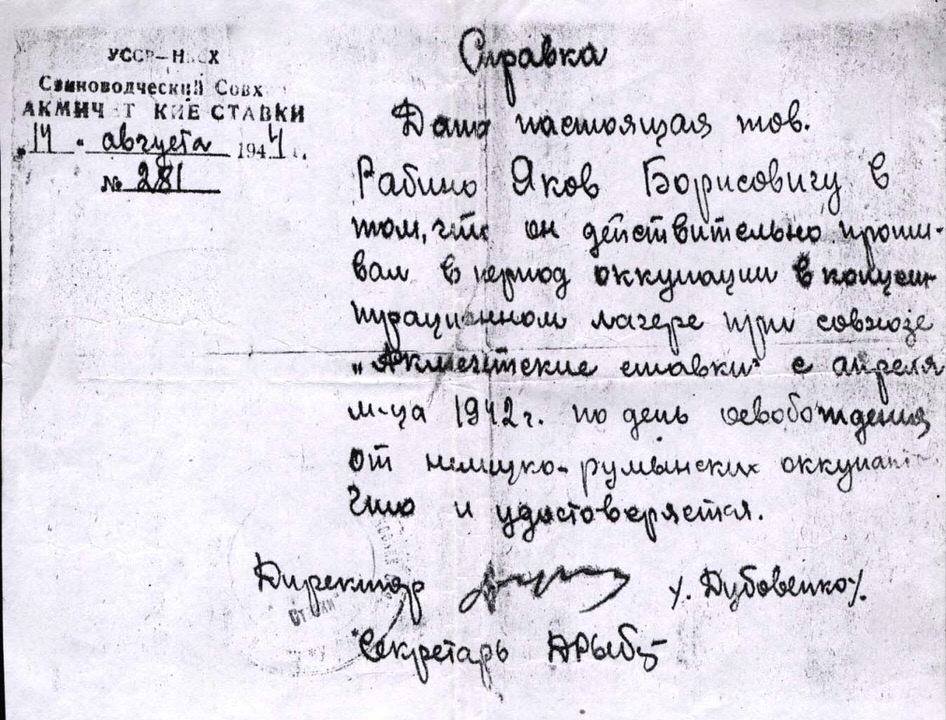 УССР-НКСХ
Свиноводческий Совх
АКМИЧЕТСКИЕ СТАВКИ
"14" августа 1944 г.
№ 281
Справка
Дана настоящая тов.
Рабино Яков Борисовичу в
том, что он действительно прожи-
вал в период оккупации в концен-
трационном лагере при совхозе
„Акмечетские ставки" с апреля
м-ца 1942 г. по день освобождения
от немецко-румынских
Что и удостоверяется.
Директор /. Дубовенко/.
Секретарь